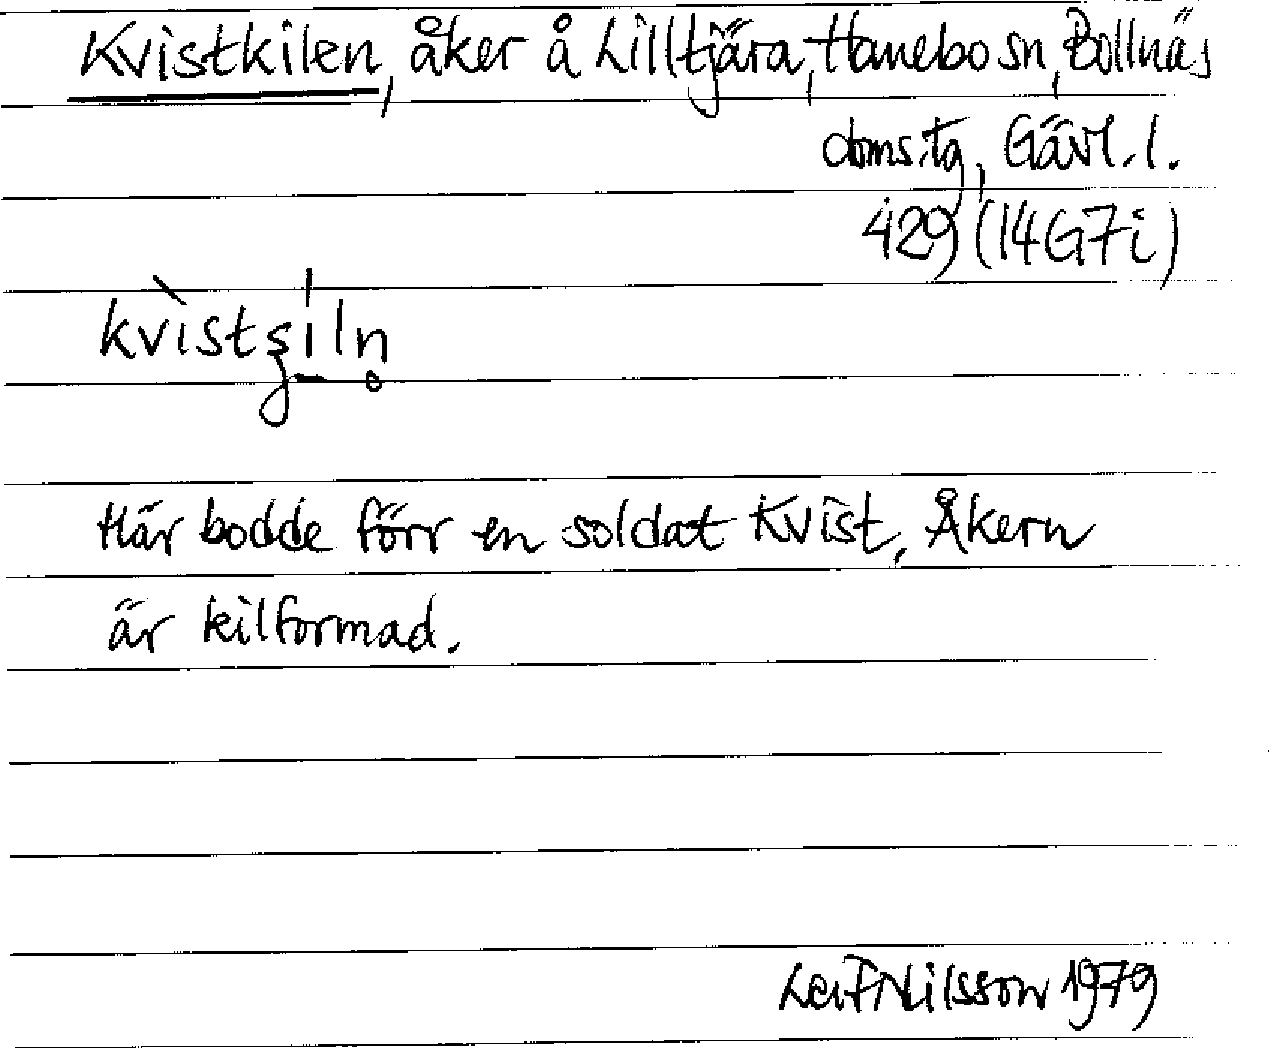 Kvistkilen, åker å Lilltjära, Hanebo sn, Bollnäs
doms.tg, Gävl. l.
429 (14G7i)
Här bodde förr en soldat Kvist. Åkern
är kilformad.
Leif Nilsson 1979